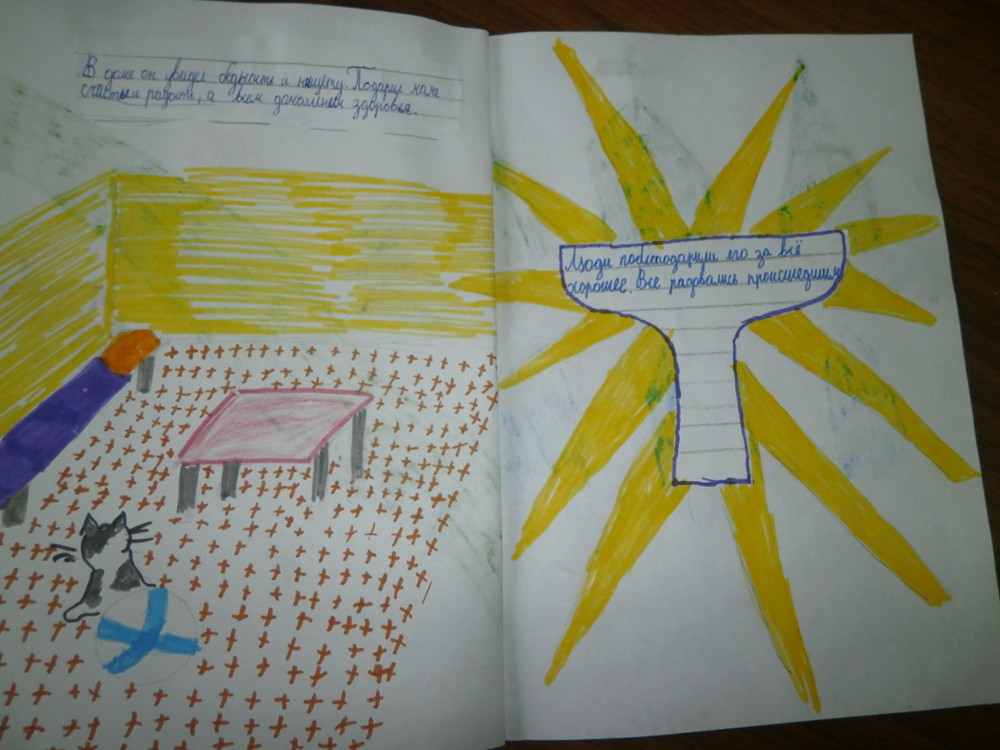 В доме он увидел бедность и нищету. Подарил маме
счастье и радость, а всем домашним здоровья.
Люди поблагодарили его за всё
хорошее. Все радовались происшедшим